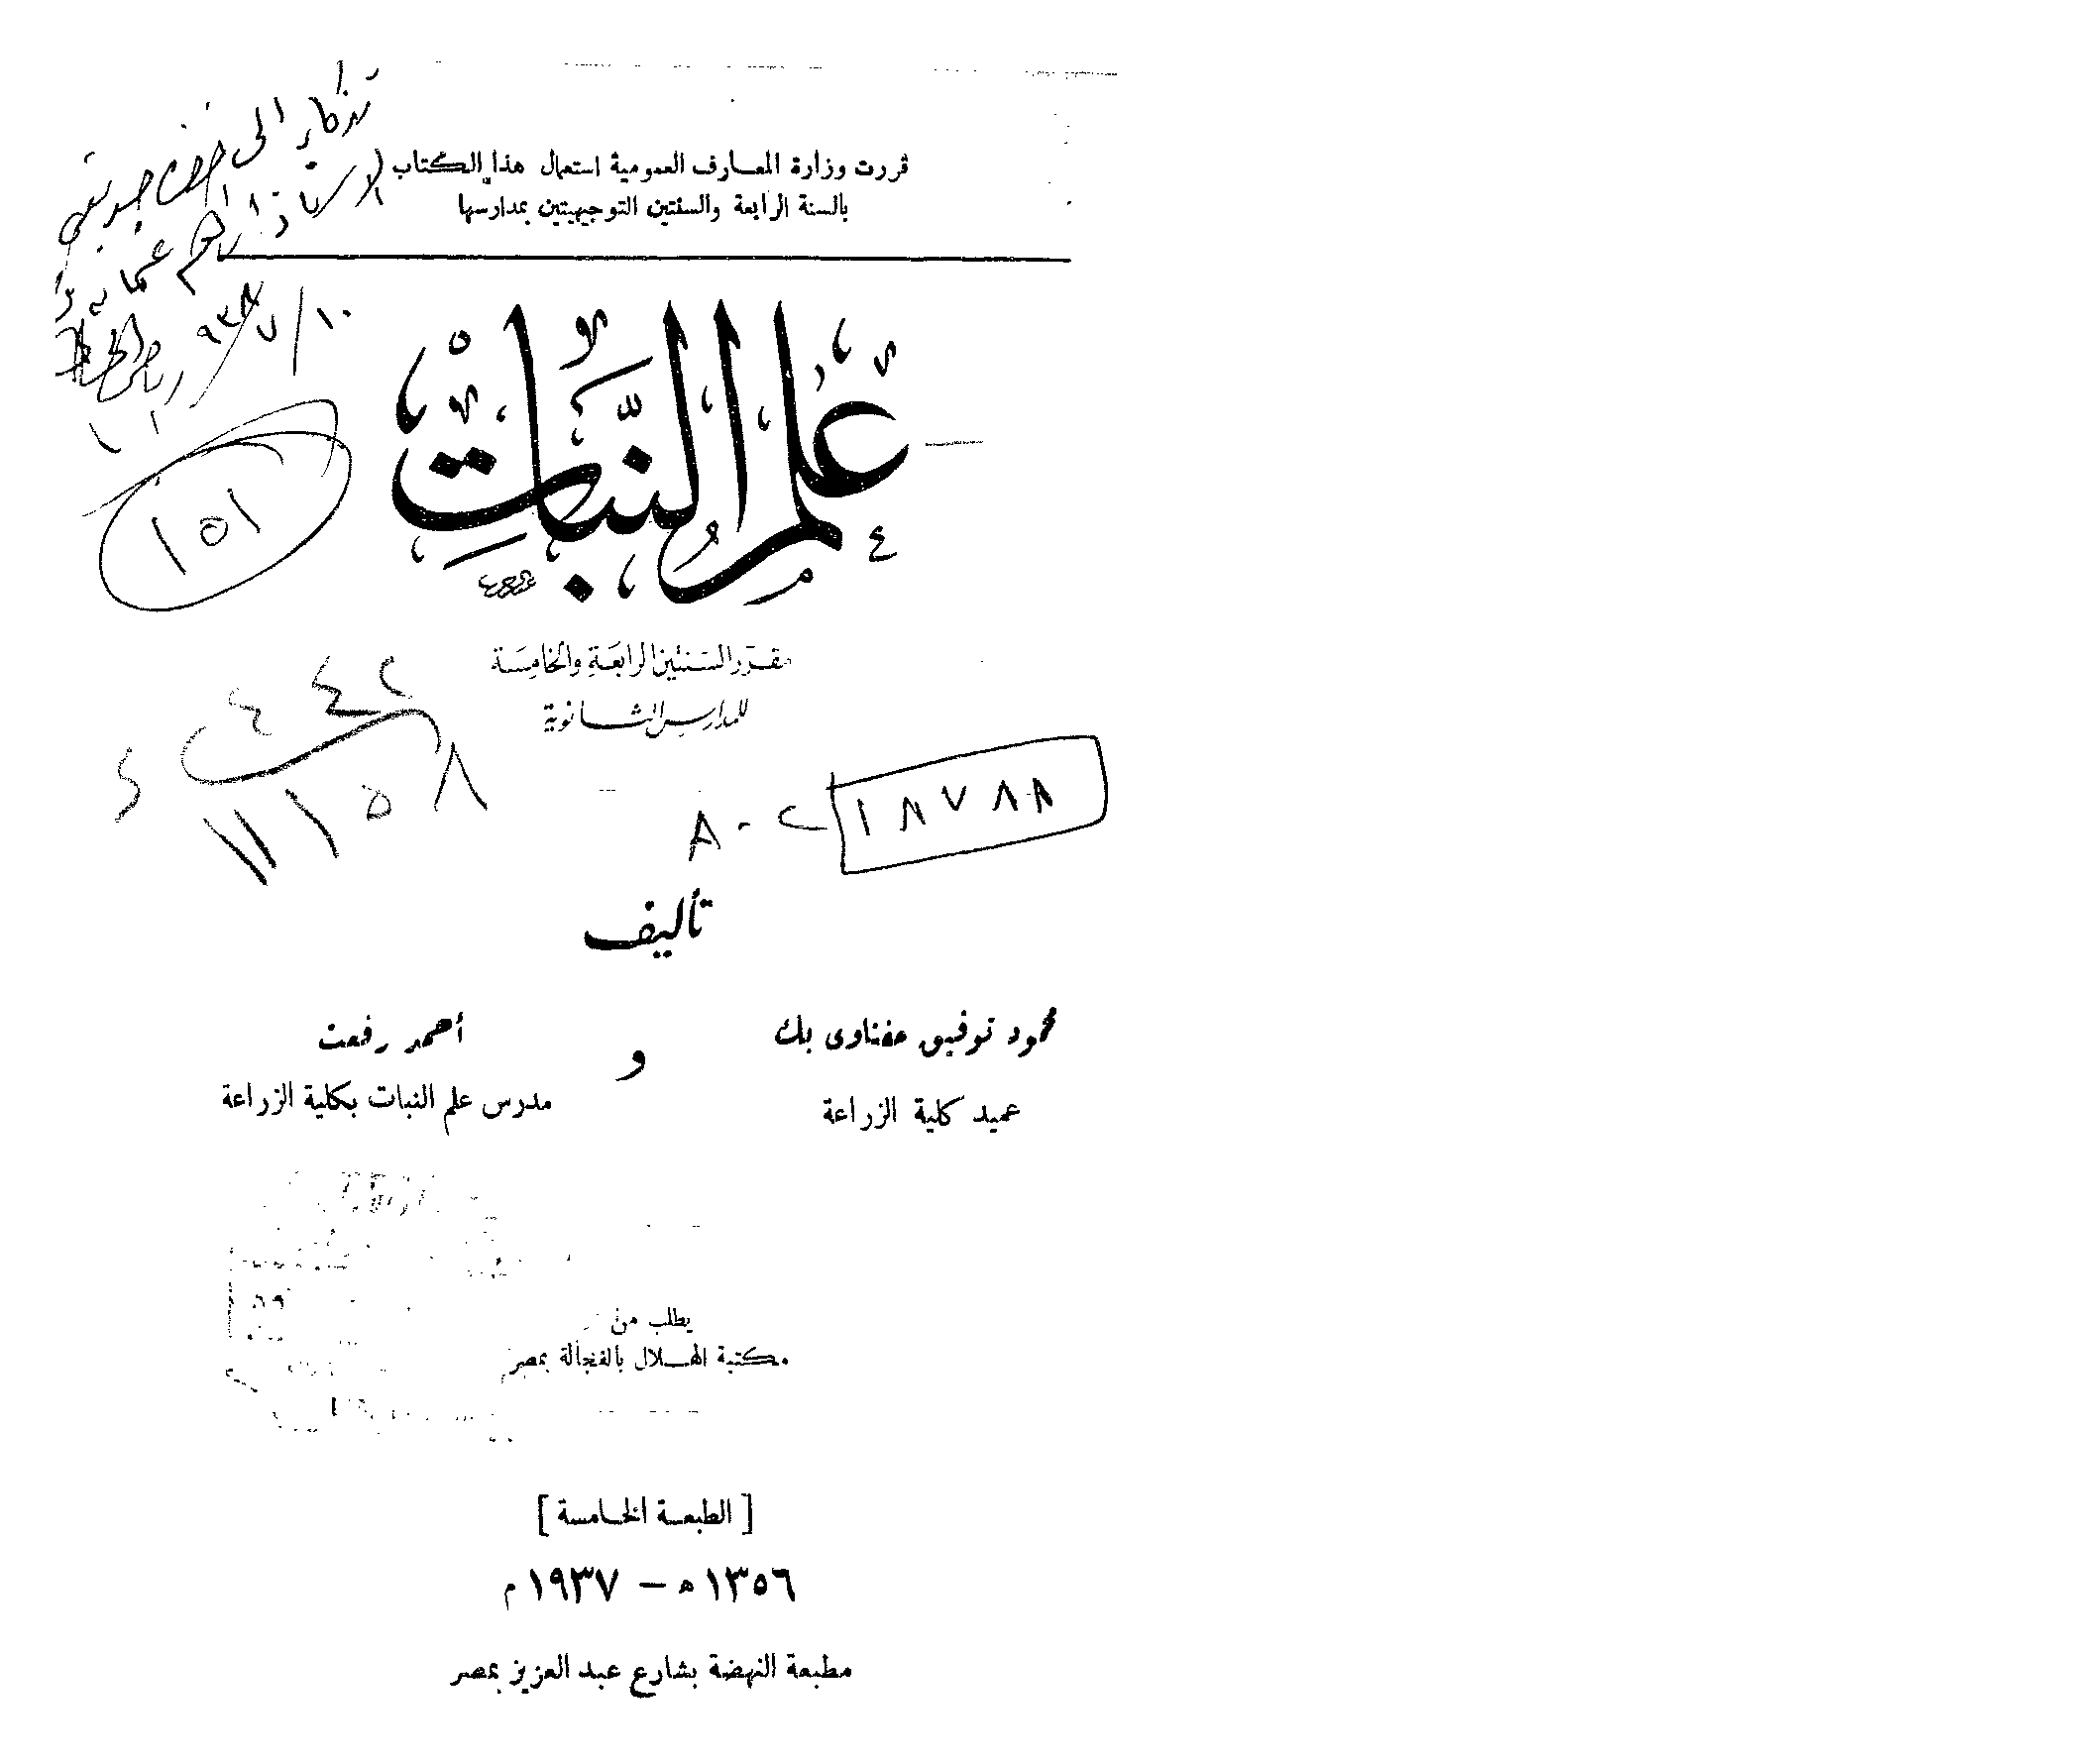 قررت وزارة المعارف العمومية استعمال هذا الكتاب
بالسنة الرابعة والسنتين التوجيهيتين بمدارسها
تذكار الى
الاستاذ
١٠/٧/٩٣٨
علم النبات
١٥١
مقرر السنتين الرابعة والخامسة
للمدارس الثانوية
١٨٧٨٨
تأليف
محمود توفيق حفناوى بك
عميد كلية الزراعة
و
أحمد رفعت
مدرس علم النبات بكلية الزراعة
يطلب من
مكتبة الهلال بالفجالة بمصر
[ الطبعة الخامسة ]
١٣٥٦ ه — ١٩٣٧ م
مطبعة النهضة بشارع عبد العزيز بمصر